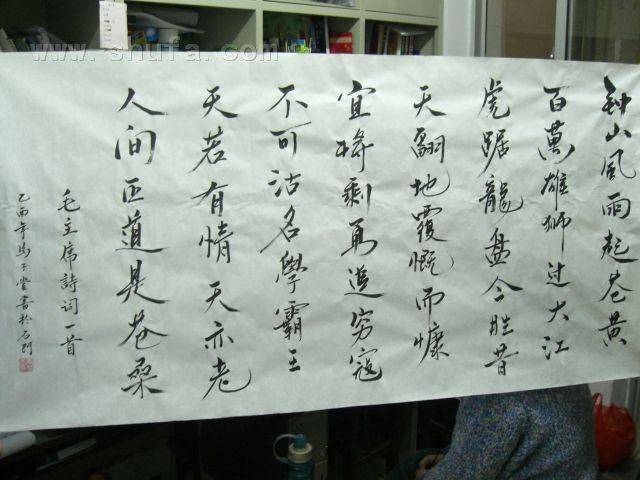 钟山風雨起苍黄
百萬雄狮过大江
虎踞龍盘今胜昔
天翻地覆慨而慷
宜将剩勇追穷寇
不可沽名學霸王
天若有情天亦老
人间正道是苍桑
毛主席詩词一首
乙酉年馬子堂書於石门
www.shufa.com